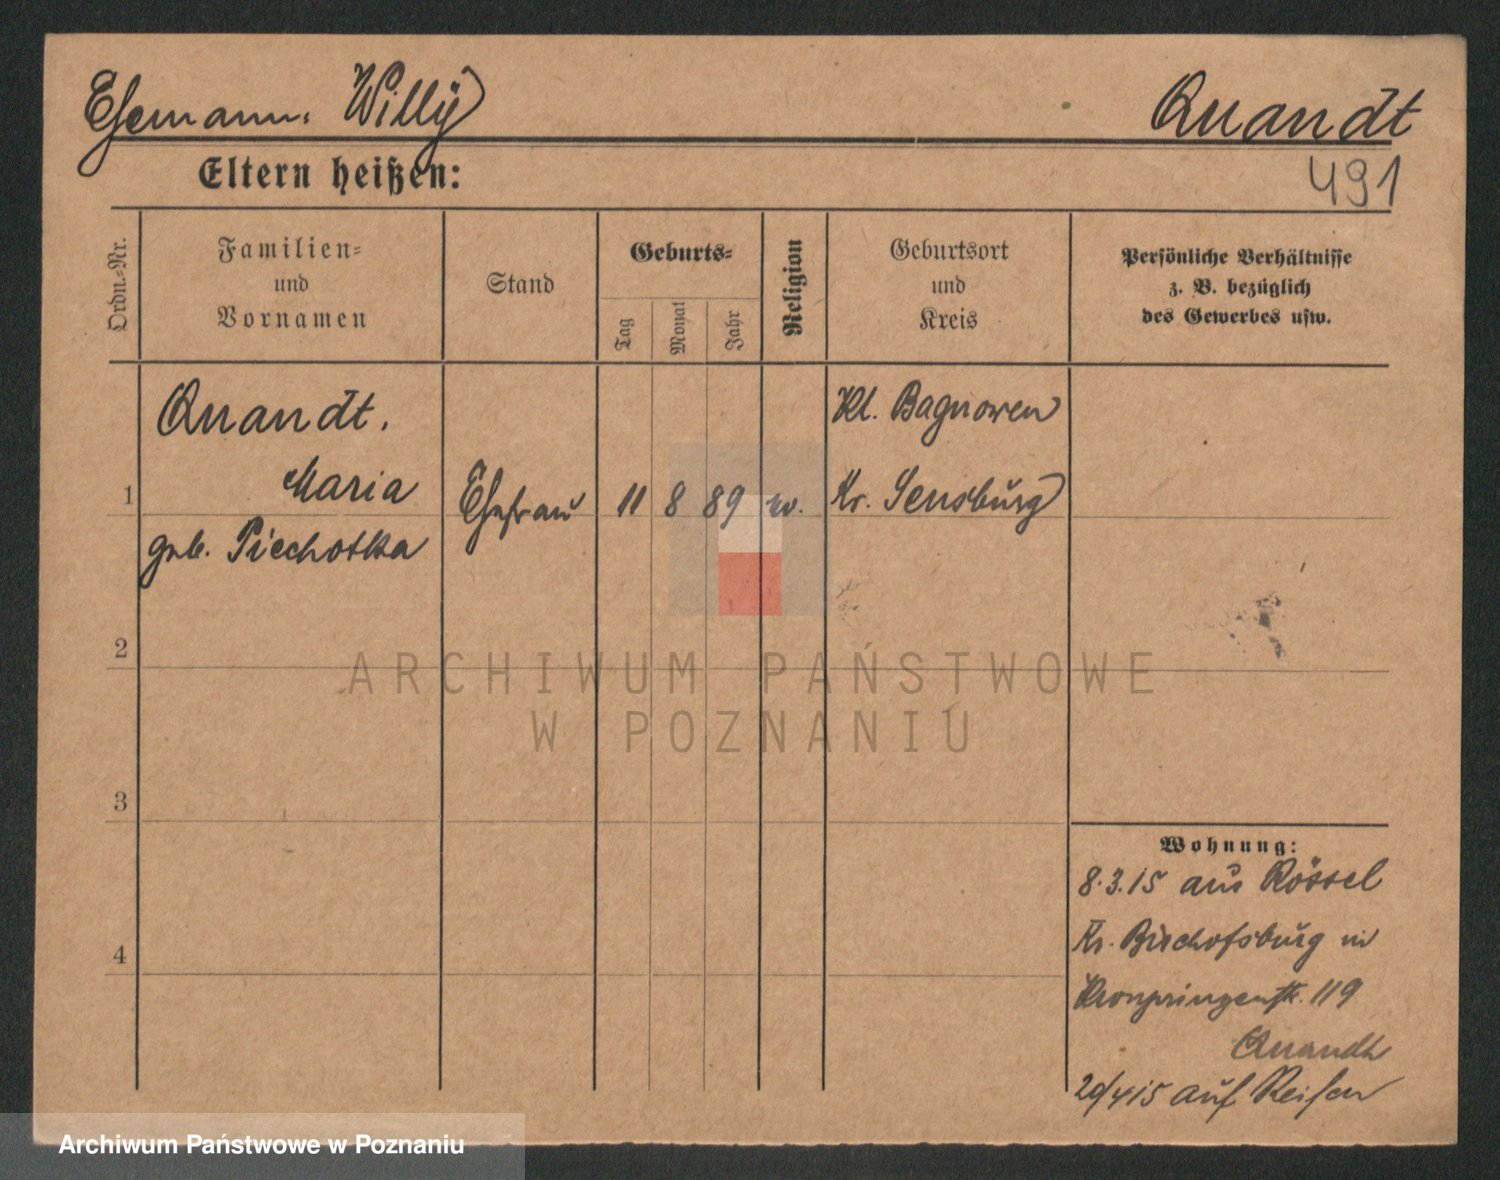 Ehemann: Willy Quandt
491
Eltern heißen:
Ordn.=Nr.
Familien=
und
Vornamen
Stand
Geburts=
Tag
Monat
Jahr
Religion
Geburtsort
und
Kreis
Persönliche Verhältnisse
z. B. bezüglich
des Gewerbes usw.
Quandt.
Maria
geb. Piechotka
1
Ehefrau
11 8 89
Kl. Bagnowen
Kr. Sensburg
2
3
4
Wohnung:
8.3.15 aus Rössel
Kr. Bischofsburg in
Kronprinzenstr. 119
Quandt
20/4 15 auf Reisen
ARCHIWUM PAŃSTWOWE
W POZNANIU
Archiwum Państwowe w Poznaniu